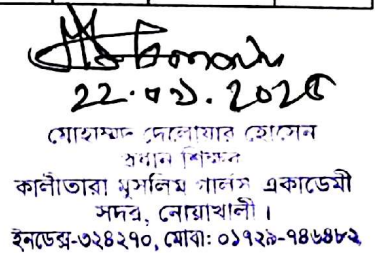 22.09.2025
মোহাম্মদ দেলোয়ার হোসেন
প্রধান শিক্ষক
কালীতারা মুসলিম গার্লস একাডেমী
সদর, নোয়াখালী।
ইনডেক্স-৩২৪২৭০, মোবা: ০১৭২৯-৭৪৬৪৮২